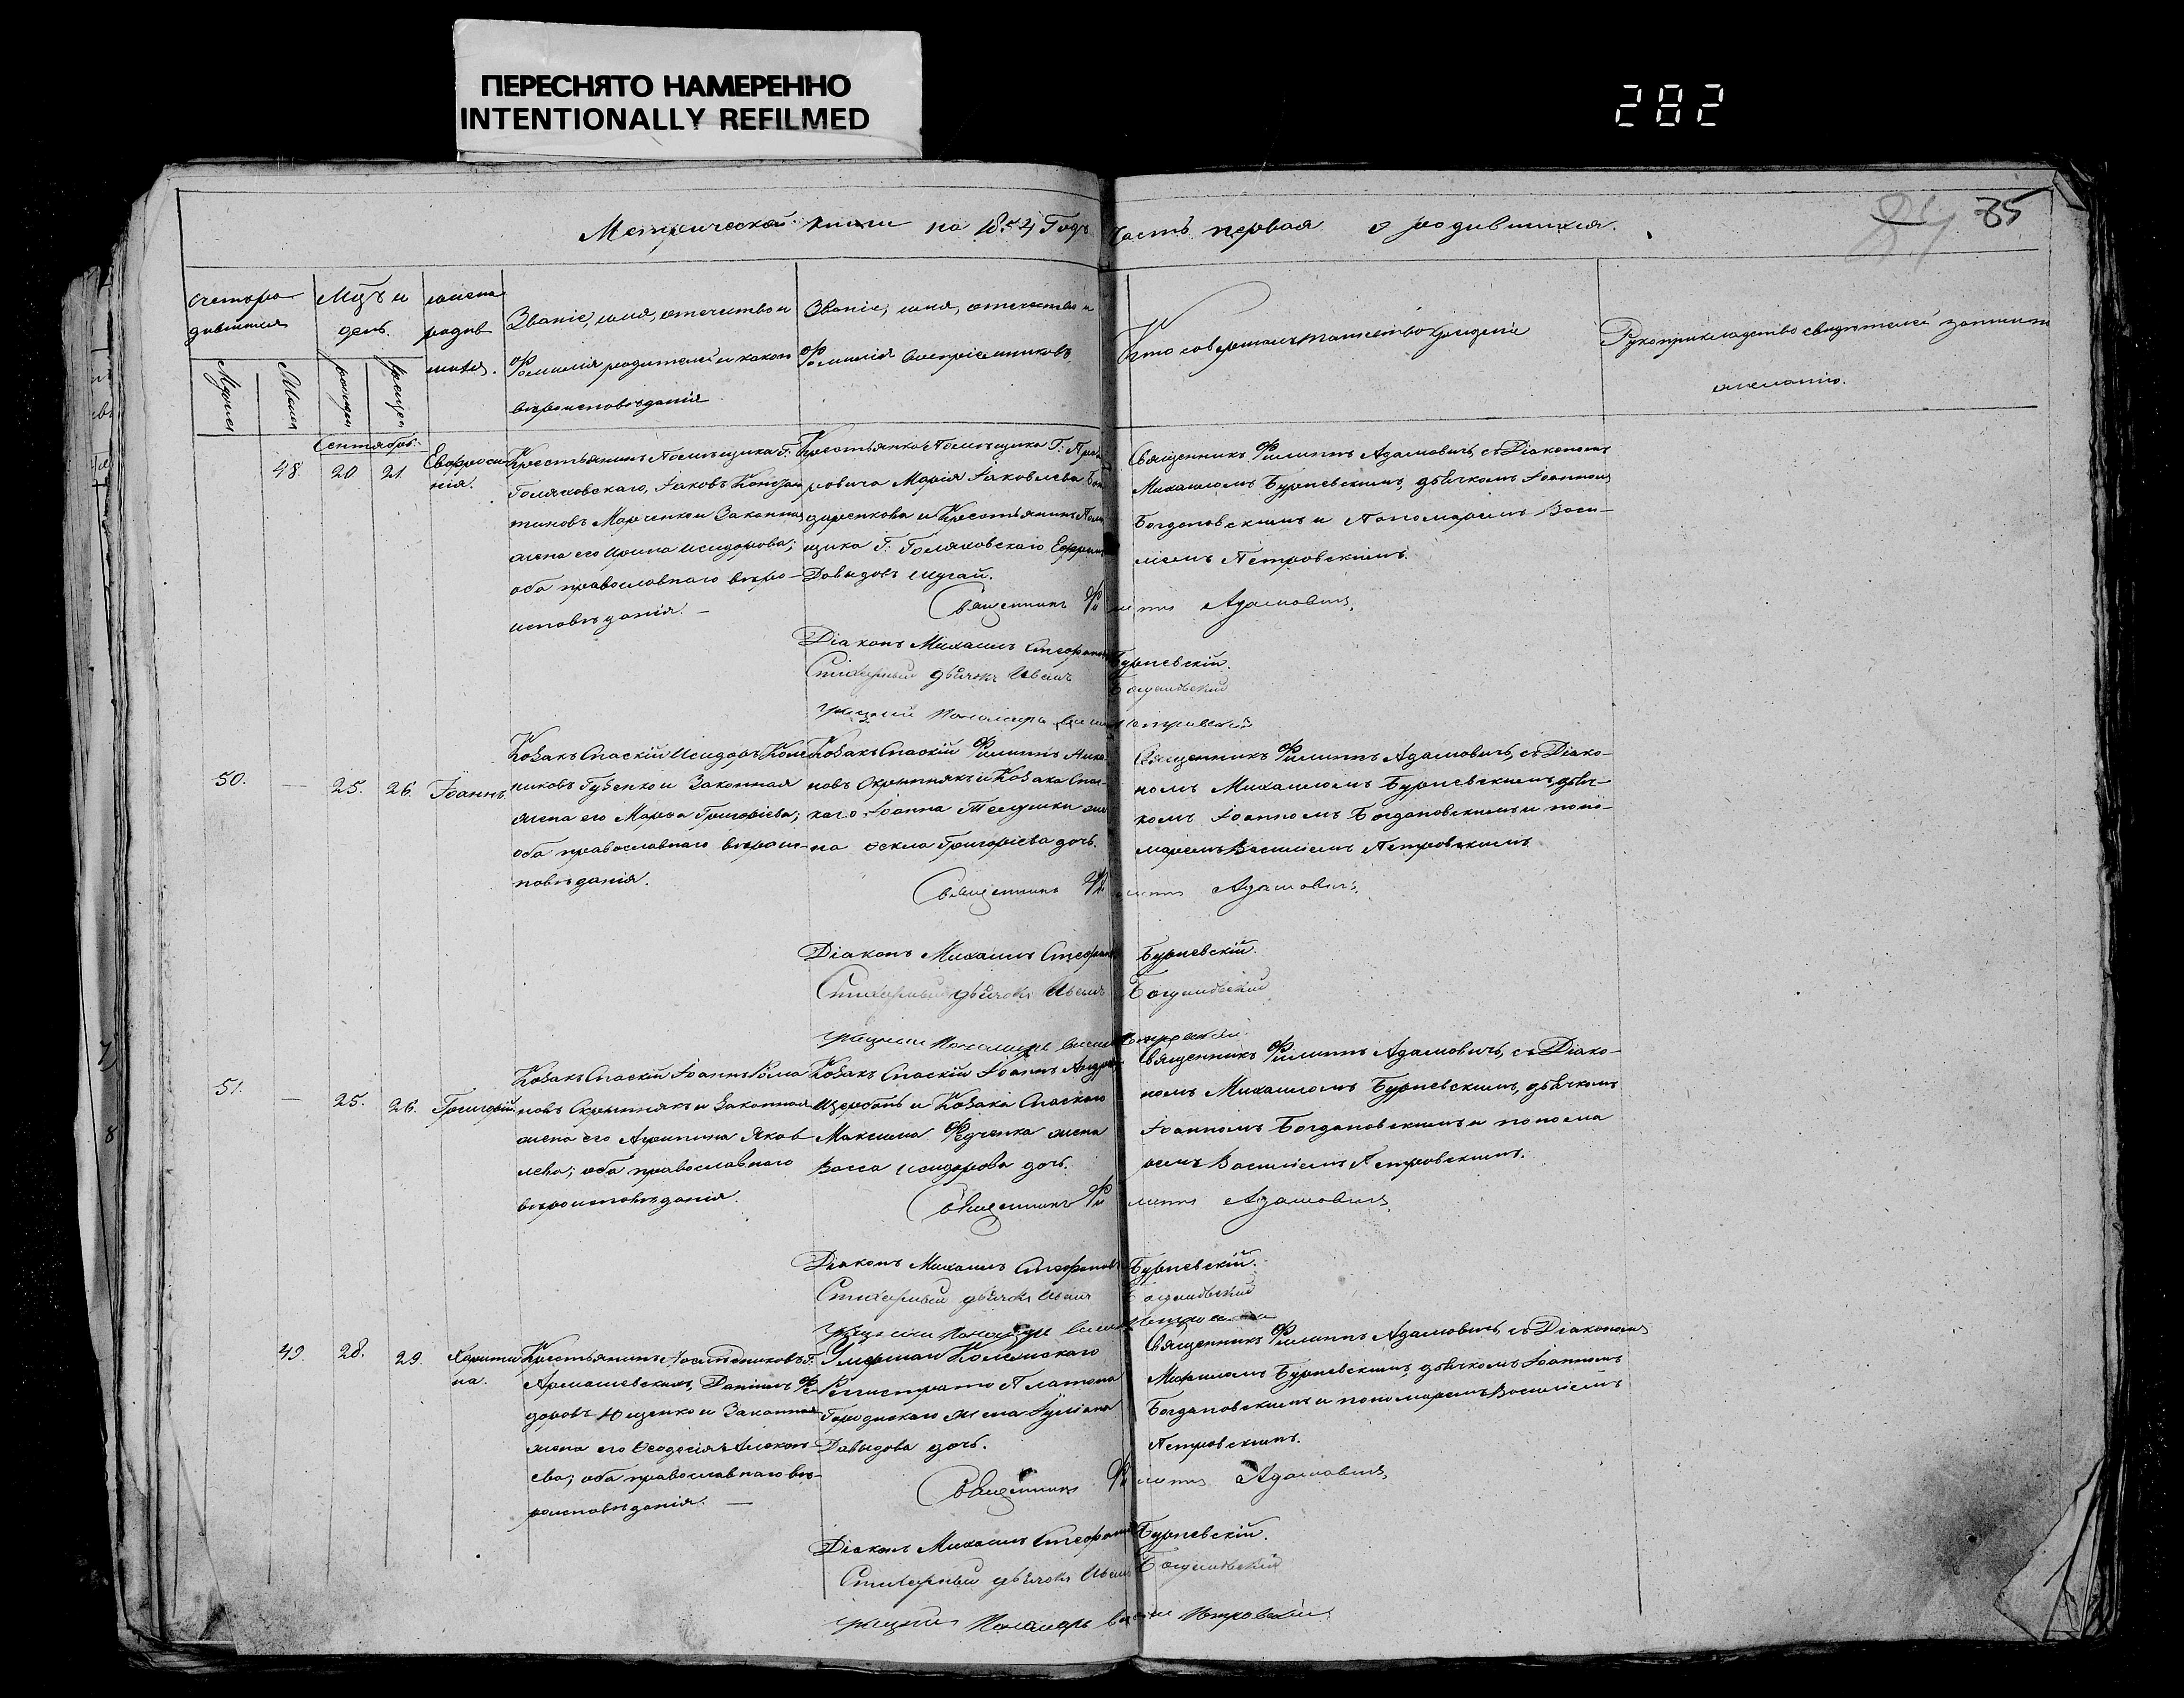 ПЕРЕСНЯТО НАМЕРЕННО
INTENTIONALLY REFILMED
282
Метрической книги на 1854 Годъ Часть первая о родившихся.
84 85
Счетъ родившихся
Мужеска
Женска
Мѣць и день.
рожденія
крещенія
имена родившихся.
Званіе, имя, отечество и
Фамилія родителей и какого
вѣроисповѣданія
Званіе, имя, отечество и
Фамилія воспріемниковъ.
Кто совершалъ таинство крещенія
Рукоприкладство свидѣтелей записи
по желанію.
Сентябрь.
48. 20. 21. Евфросинія.
Крестьянинъ Помѣщика Г.
Голяховскаго, Іаковъ Констан
тиновъ Марченко и Законная
жена его Ирина Исидорова;
оба православнаго вѣро-
исповѣданія. —
Крестьянка Помѣщика Г.
Марія Іаковлева
и Крестьянинъ Помѣ
щика Г. Голяховскаго
Давыдовъ Шугай.
Священникъ Филиппъ Адамовичъ, съ Діакономъ
Михаиломъ Бурневскимъ, дьячкомъ Іоанномъ
Богдановскимъ и Пономаремъ Васи-
ліемъ Петровскимъ.
Священникъ Филиппъ Адамовичъ.
Діаконъ Михаилъ Стефановъ Бурневскій.
Стихарный дьячокъ Иванъ Богдановскій
Пономарь Василій Петровскій
50. — 25. 26. Іоаннъ.
Козакъ Спаскій Исидоръ
Губенко и Законная
жена его Марфа Григоріева;
оба православнаго вѣроис-
повѣданія.
Козакъ Спаскій Филиппъ
новъ Скрыпнякъ и Козака Спас
каго Іоанна Телушки же
на Ѳекла Григоріева дочь.
Священникъ Филиппъ Адамовичъ, съ Діако-
номъ Михаиломъ Бурневскимъ, дьяч-
комъ Іоанномъ Богдановскимъ и поно-
маремъ Василіемъ Петровскимъ.
Священникъ Филиппъ Адамовичъ.
Діаконъ Михаилъ Стефановъ Бурневскій.
Стихарный дьячокъ Иванъ Богдановскій
Пономарь Василій Петровскій
51. — 25. 26. Григорій.
Козакъ Спаскій Іоаннъ Рома
новъ Скрыпнякъ и Законная
жена его Агрипина Яков
лева; оба православнаго
вѣроисповѣданія.
Козакъ Спаскій Іоаннъ
и Козака Спаскаго
Максима Федченка жена
Васса Исидорова дочь.
Священникъ Филиппъ Адамовичъ, съ Діако-
номъ Михаиломъ Бурневскимъ, дьячкомъ
Іоанномъ Богдановскимъ и понома
ремъ Василіемъ Петровскимъ.
Священникъ Филиппъ Адамовичъ.
Діаконъ Михаилъ Стефановъ Бурневскій.
Стихарный дьячокъ Иванъ Богдановскій
Пономарь Василій Петровскій
49. 28. 29. Харитина.
Крестьянинъ Наслѣдниковъ Г.
Армашевскихъ, Даніилъ Фе-
доровъ Ющенко и Законная
жена его Ѳеодосія
ева; оба православнаго вѣ-
роисповѣданія. —
Умершаго Колежскаго
Регистратора Платона
Городискаго жена Іуліана
Давыдова дочь.
Священникъ Филиппъ Адамовичъ, съ Діакономъ
Михаиломъ Бурневскимъ, дьячкомъ Іоанномъ
Богдановскимъ и пономаремъ Василіемъ
Петровскимъ.
Священникъ Филиппъ Адамовичъ.
Діаконъ Михаилъ Стефановъ Бурневскій.
Стихарный дьячокъ Иванъ Богдановскій
Пономарь Василій Петровскій